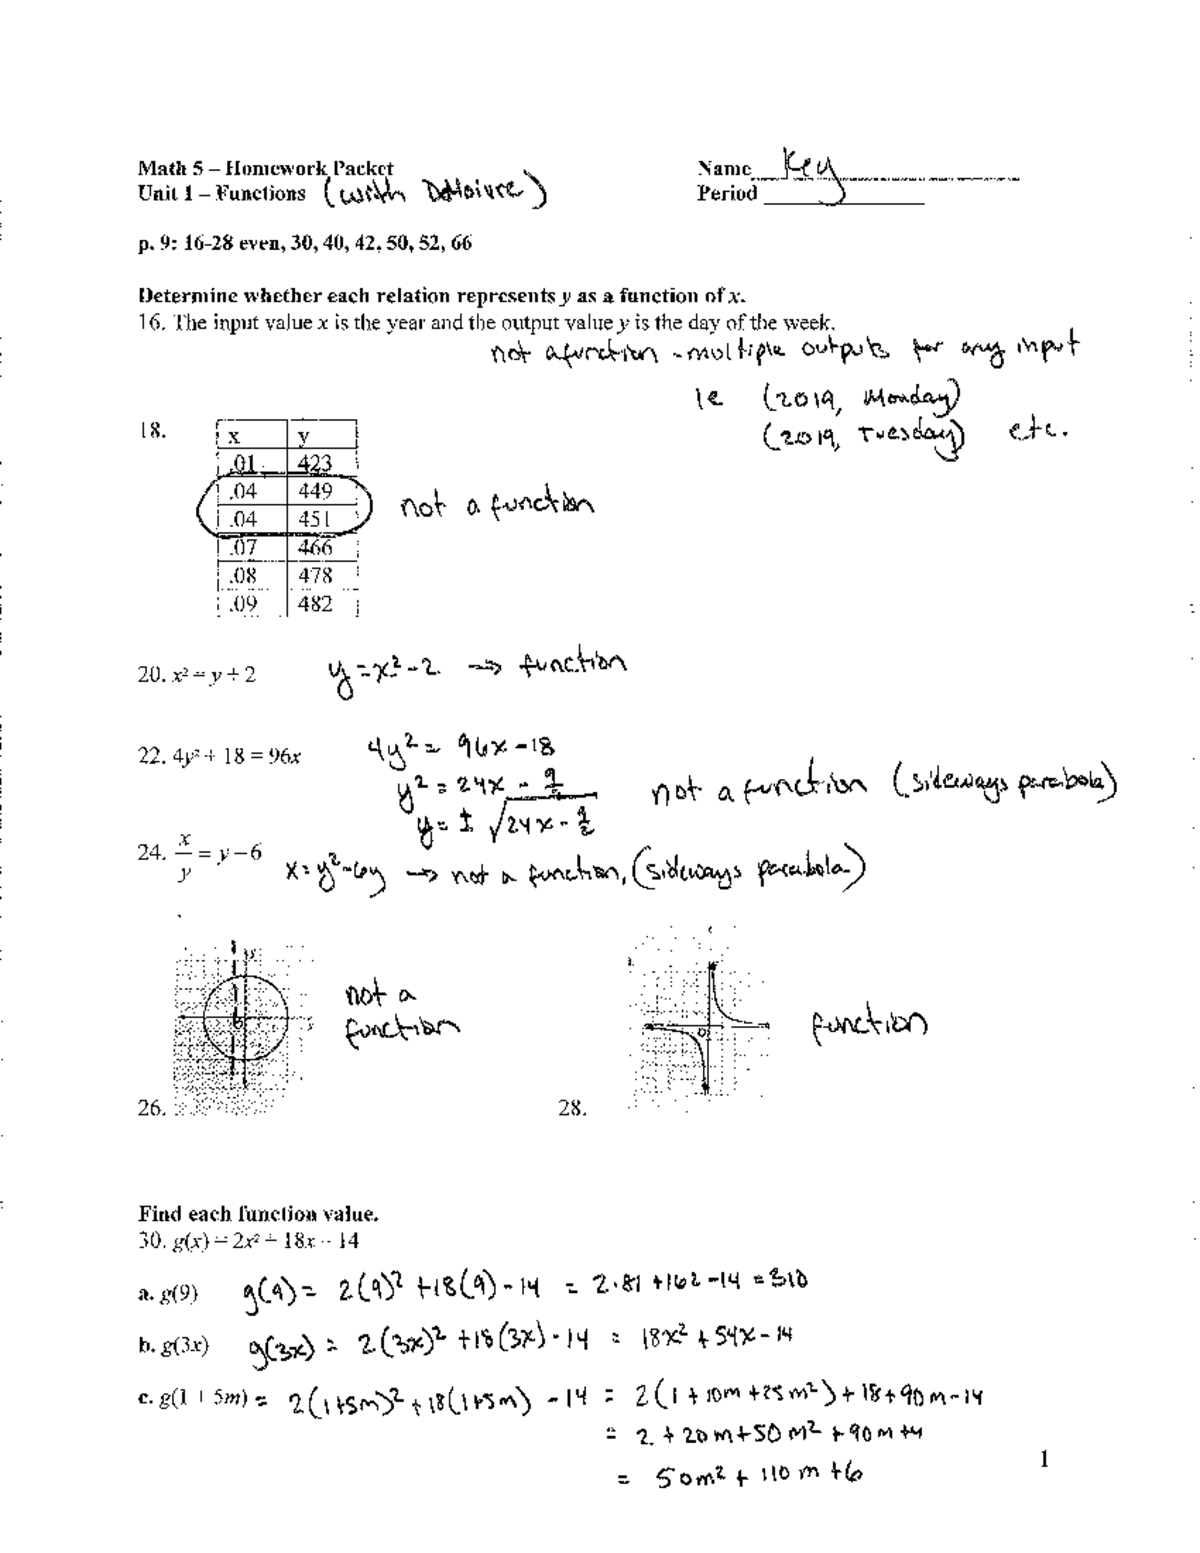 Math 5 – Homework Packet
Name Key
Unit 1 – Functions (with DeMoivre)
Period
p. 9: 16-28 even, 30, 40, 42, 50, 52, 66
Determine whether each relation represents y as a function of x.
16. The input value x is the year and the output value y is the day of the week.
not a function - multiple outputs for any input
ie (2019, Monday)
(2019, Tuesday) etc.
18.
x y
.01 423
.04 449
.04 451
.07 466
.08 478
.09 482
not a function
20. x² = y + 2 y = x² - 2 → function
22. 4y² + 18 = 96x 4y² = 96x - 18
y² = 24x - 9/2
y = ± √24x - 9/2
not a function (sideways parabola)
24. x/y = y – 6 x = y² - 6y → not a function, (sideways parabola)
not a
function
function
26.
28.
Find each function value.
30. g(x) = 2x² + 18x - 14
a. g(9) g(9) = 2(9)² + 18(9) - 14 = 2·81 + 162 - 14 = 310
b. g(3x) g(3x) = 2(3x)² + 18(3x) - 14 = 18x² + 54x - 14
c. g(1 + 5m) = 2(1+5m)² + 18(1+5m) - 14 = 2(1 + 10m + 25m²) + 18 + 90m - 14
= 2 + 20m + 50m² + 90m + 4
= 50m² + 110m + 6
1